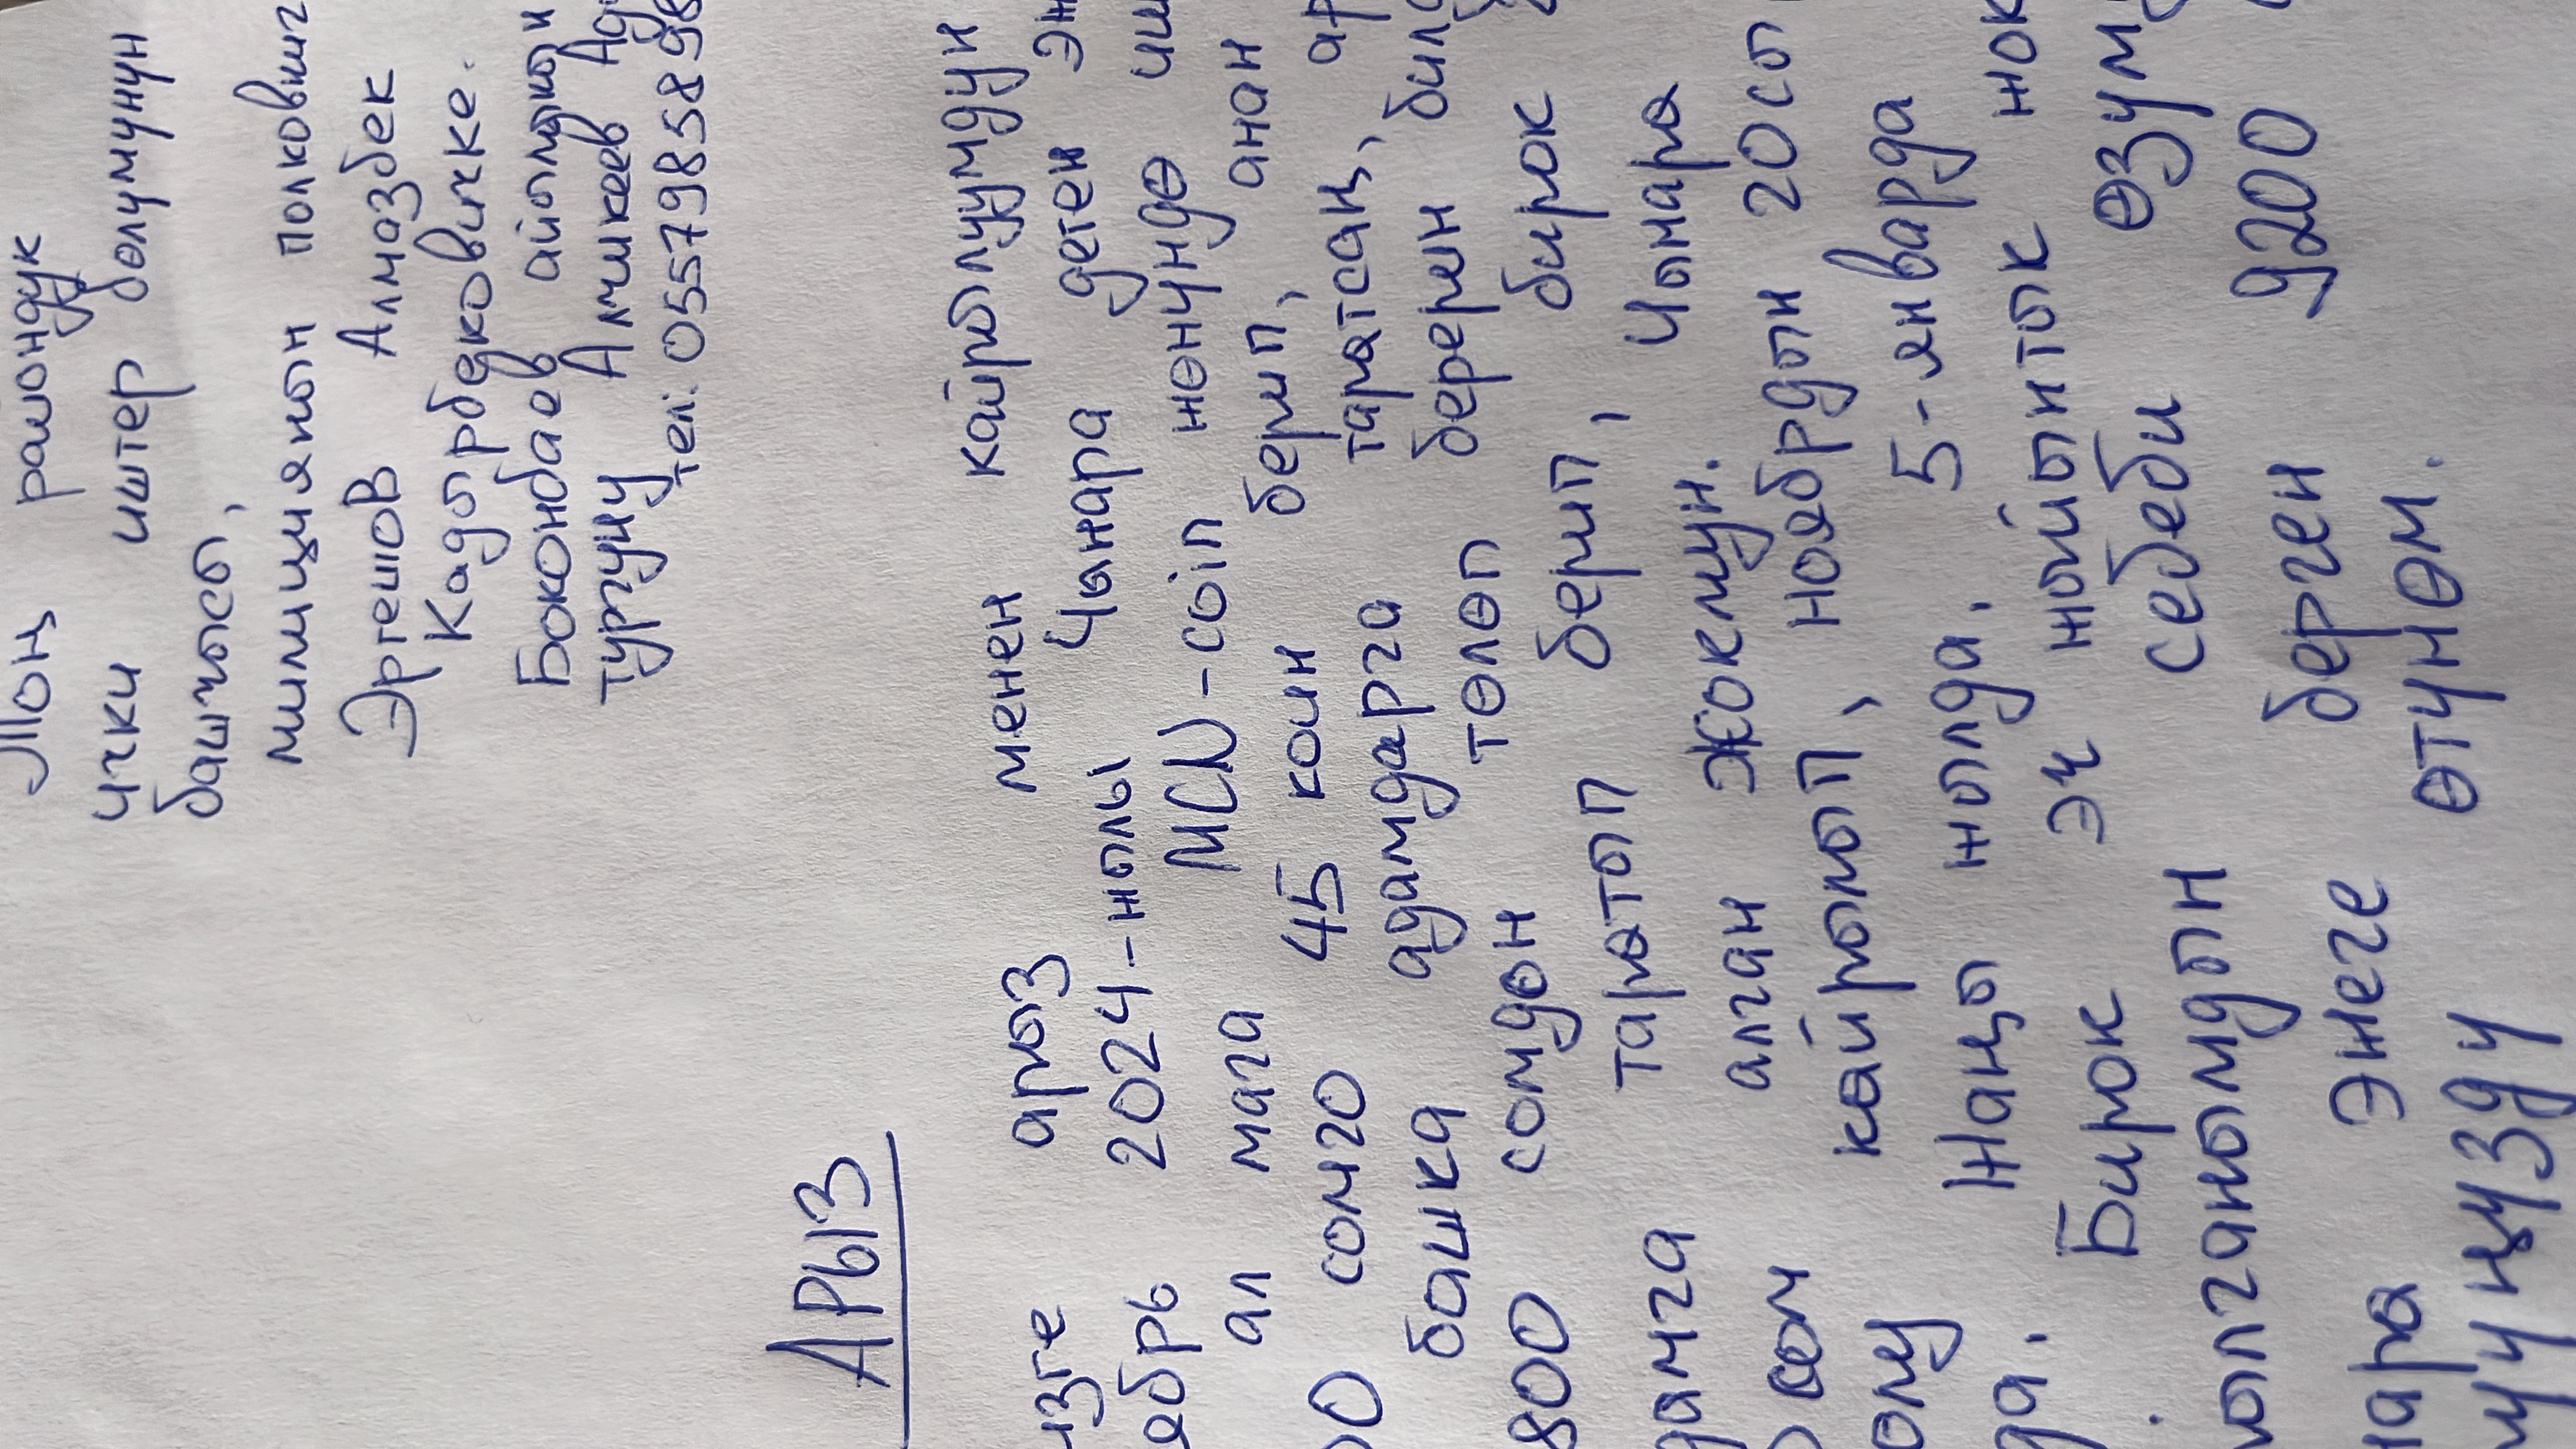 Тоң райондук
ички иштер бөлумунун
башчысы,
милициянын полковниг
Эргешов Алмазбек
Кадырбековичке.
Боконбаев айылынын
тургуну Алчикеев Ад
тел: 0557985898
АРЫЗ
изге арыз менен кайрылуумдун
ябрь 2024-жылы Чынара деген эж
ал мага MCN-coin жөнүндө иш
00 сомго 45 коин берип, анан
башка адамдарга таратсаң, ар
800 сомдон төлөп берерин билд
дамга таратып берип, бирок
0 сом алган жокмун. Чынара
өлү кайрылып, ноябрдын 20сы
да. Жаңы жылда. 5-январда
. Бирок эч жыйынтык жок
ылганымдын себеби өзүмд
нара эжеге берген 9200
уңузду өтүнөм.